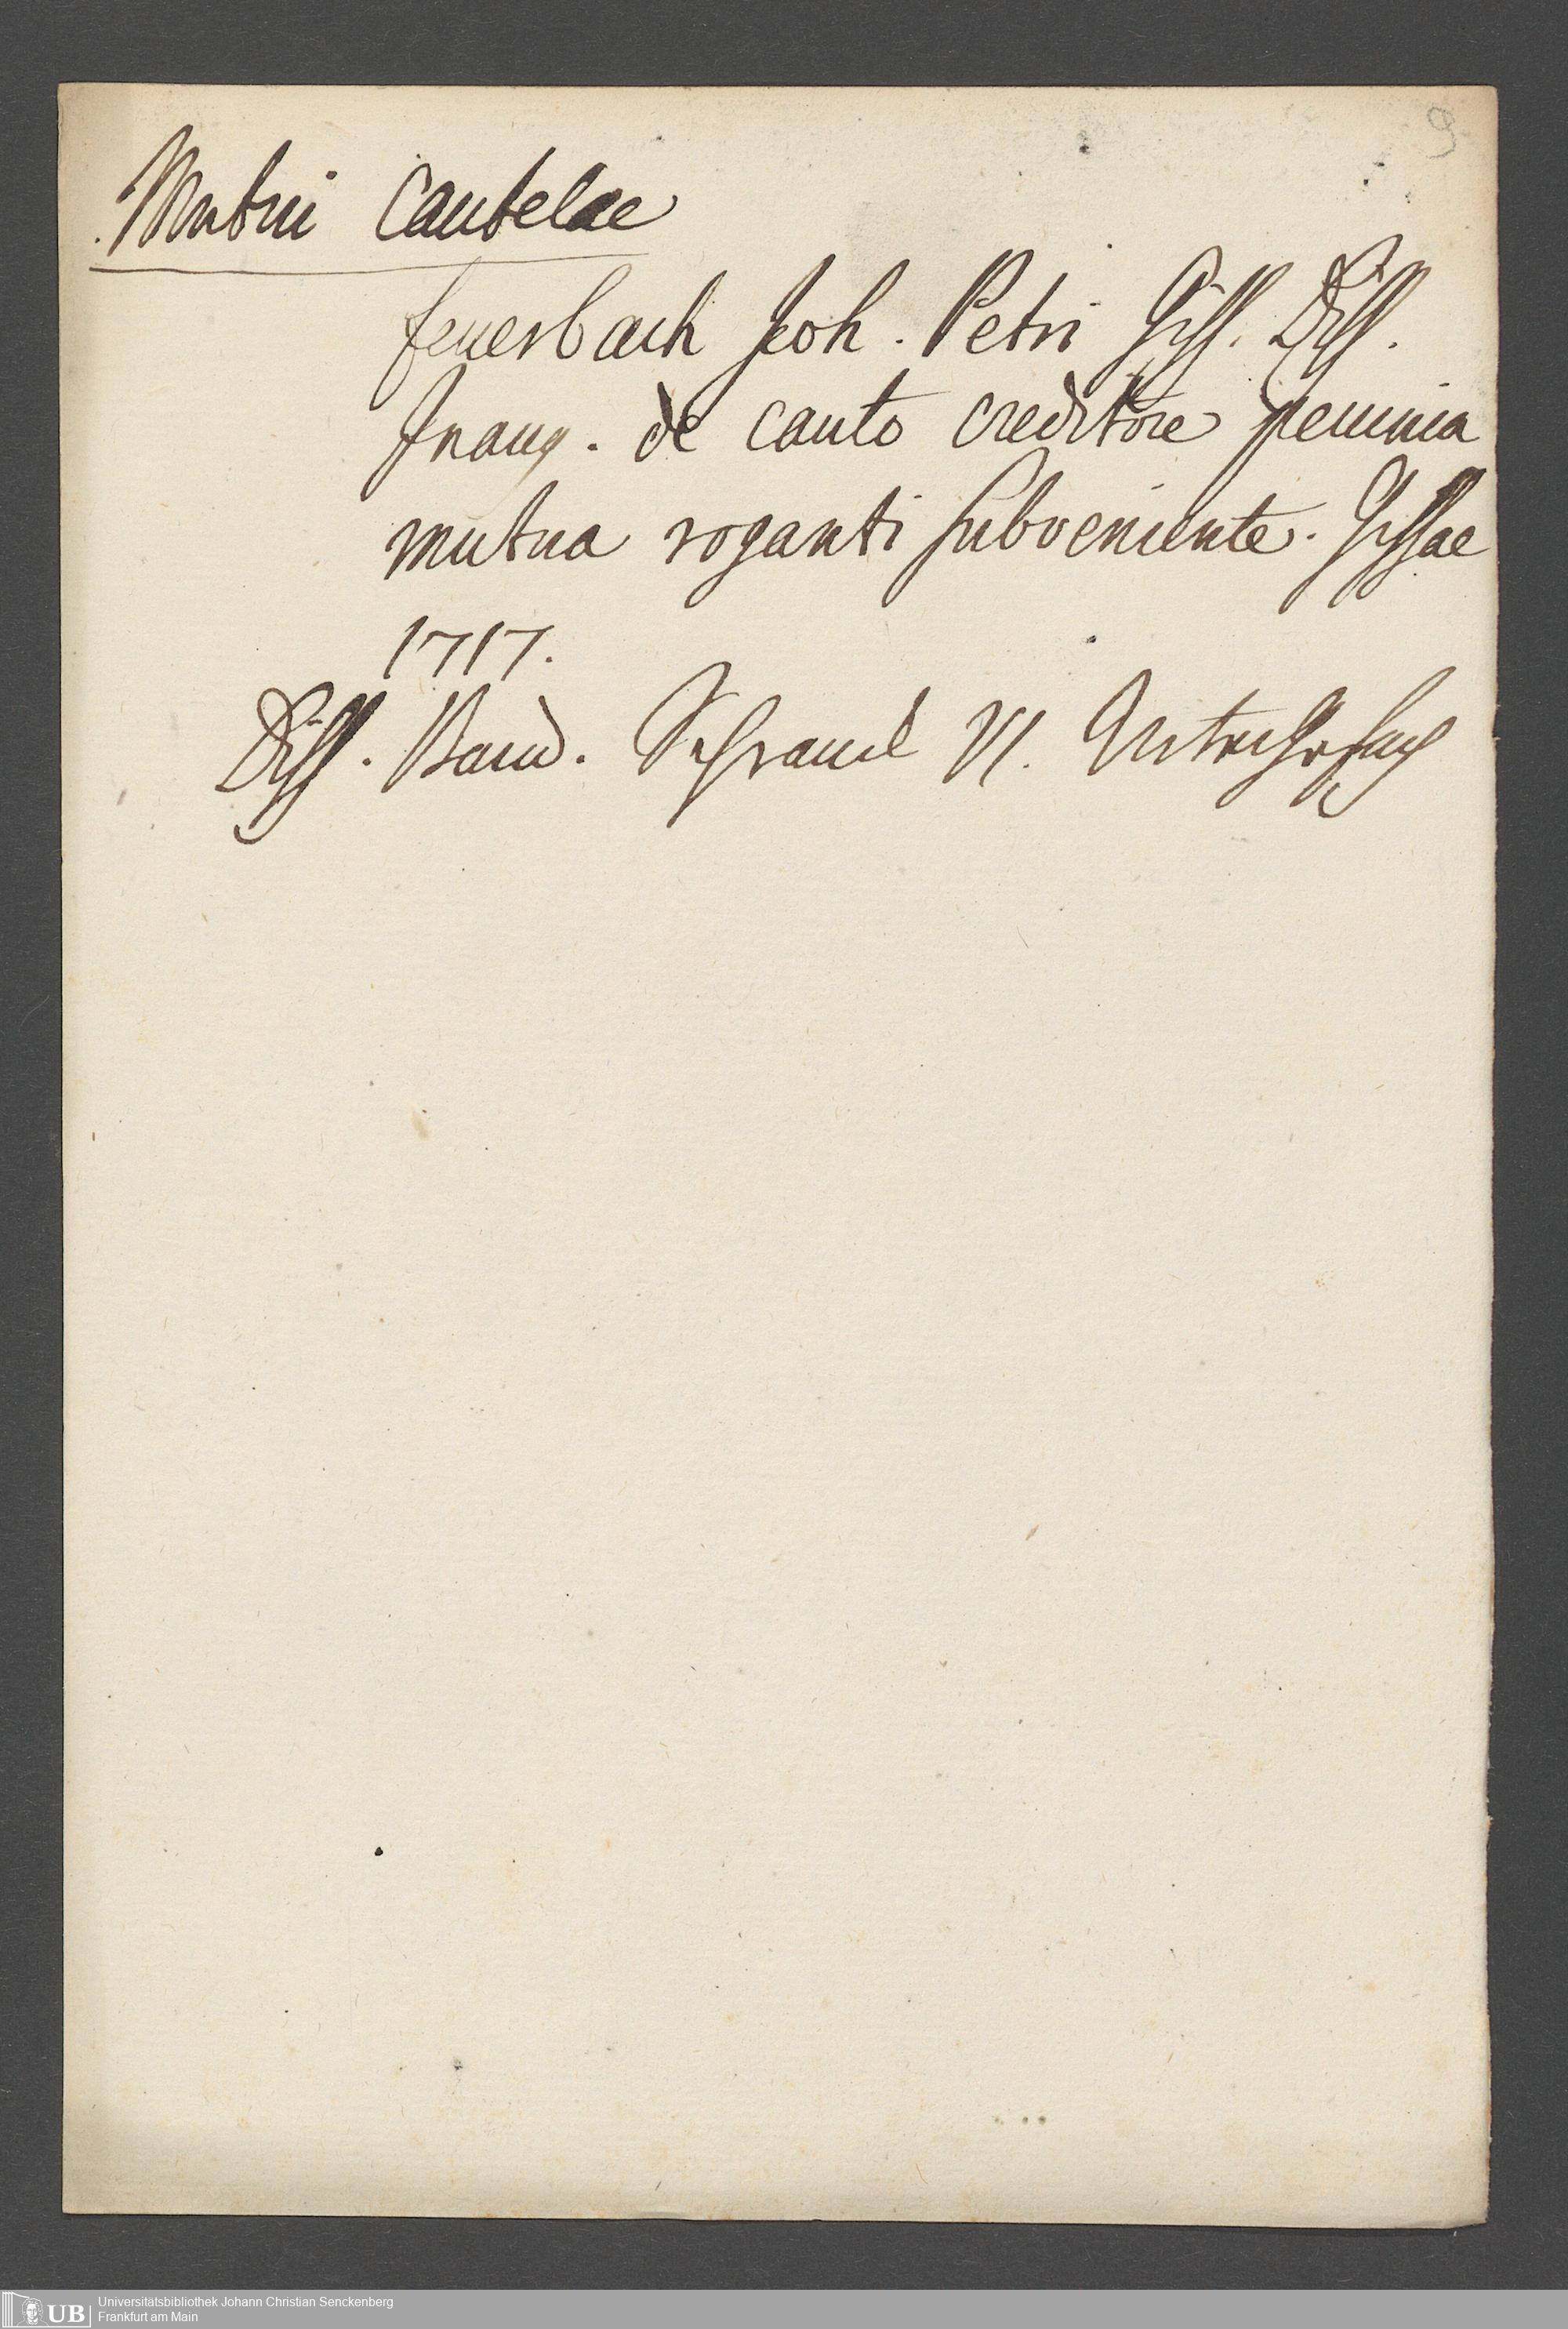 9
Mutui Cautelae
Feuerbach Joh. Petri Giss. Diss.
Inaug. de cauto creditore pecunia
mutua roganti subveniente. Gissae
1717.
Diss. Band. Schrank VI.
UB Universitätsbibliothek Johann Christian Senckenberg
Frankfurt am Main